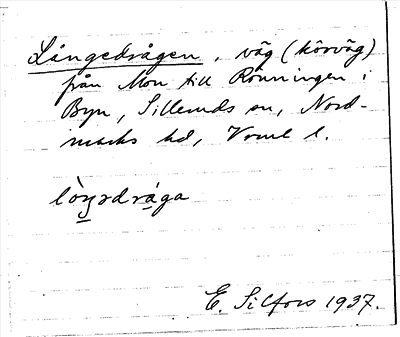 Långedrågen, väg (körväg)
från Mon till Rönningen i
Byn, Sillerud sn, Nord-
marks hd, Vrml l.
lòŋədrága
E. Silfors 1937.